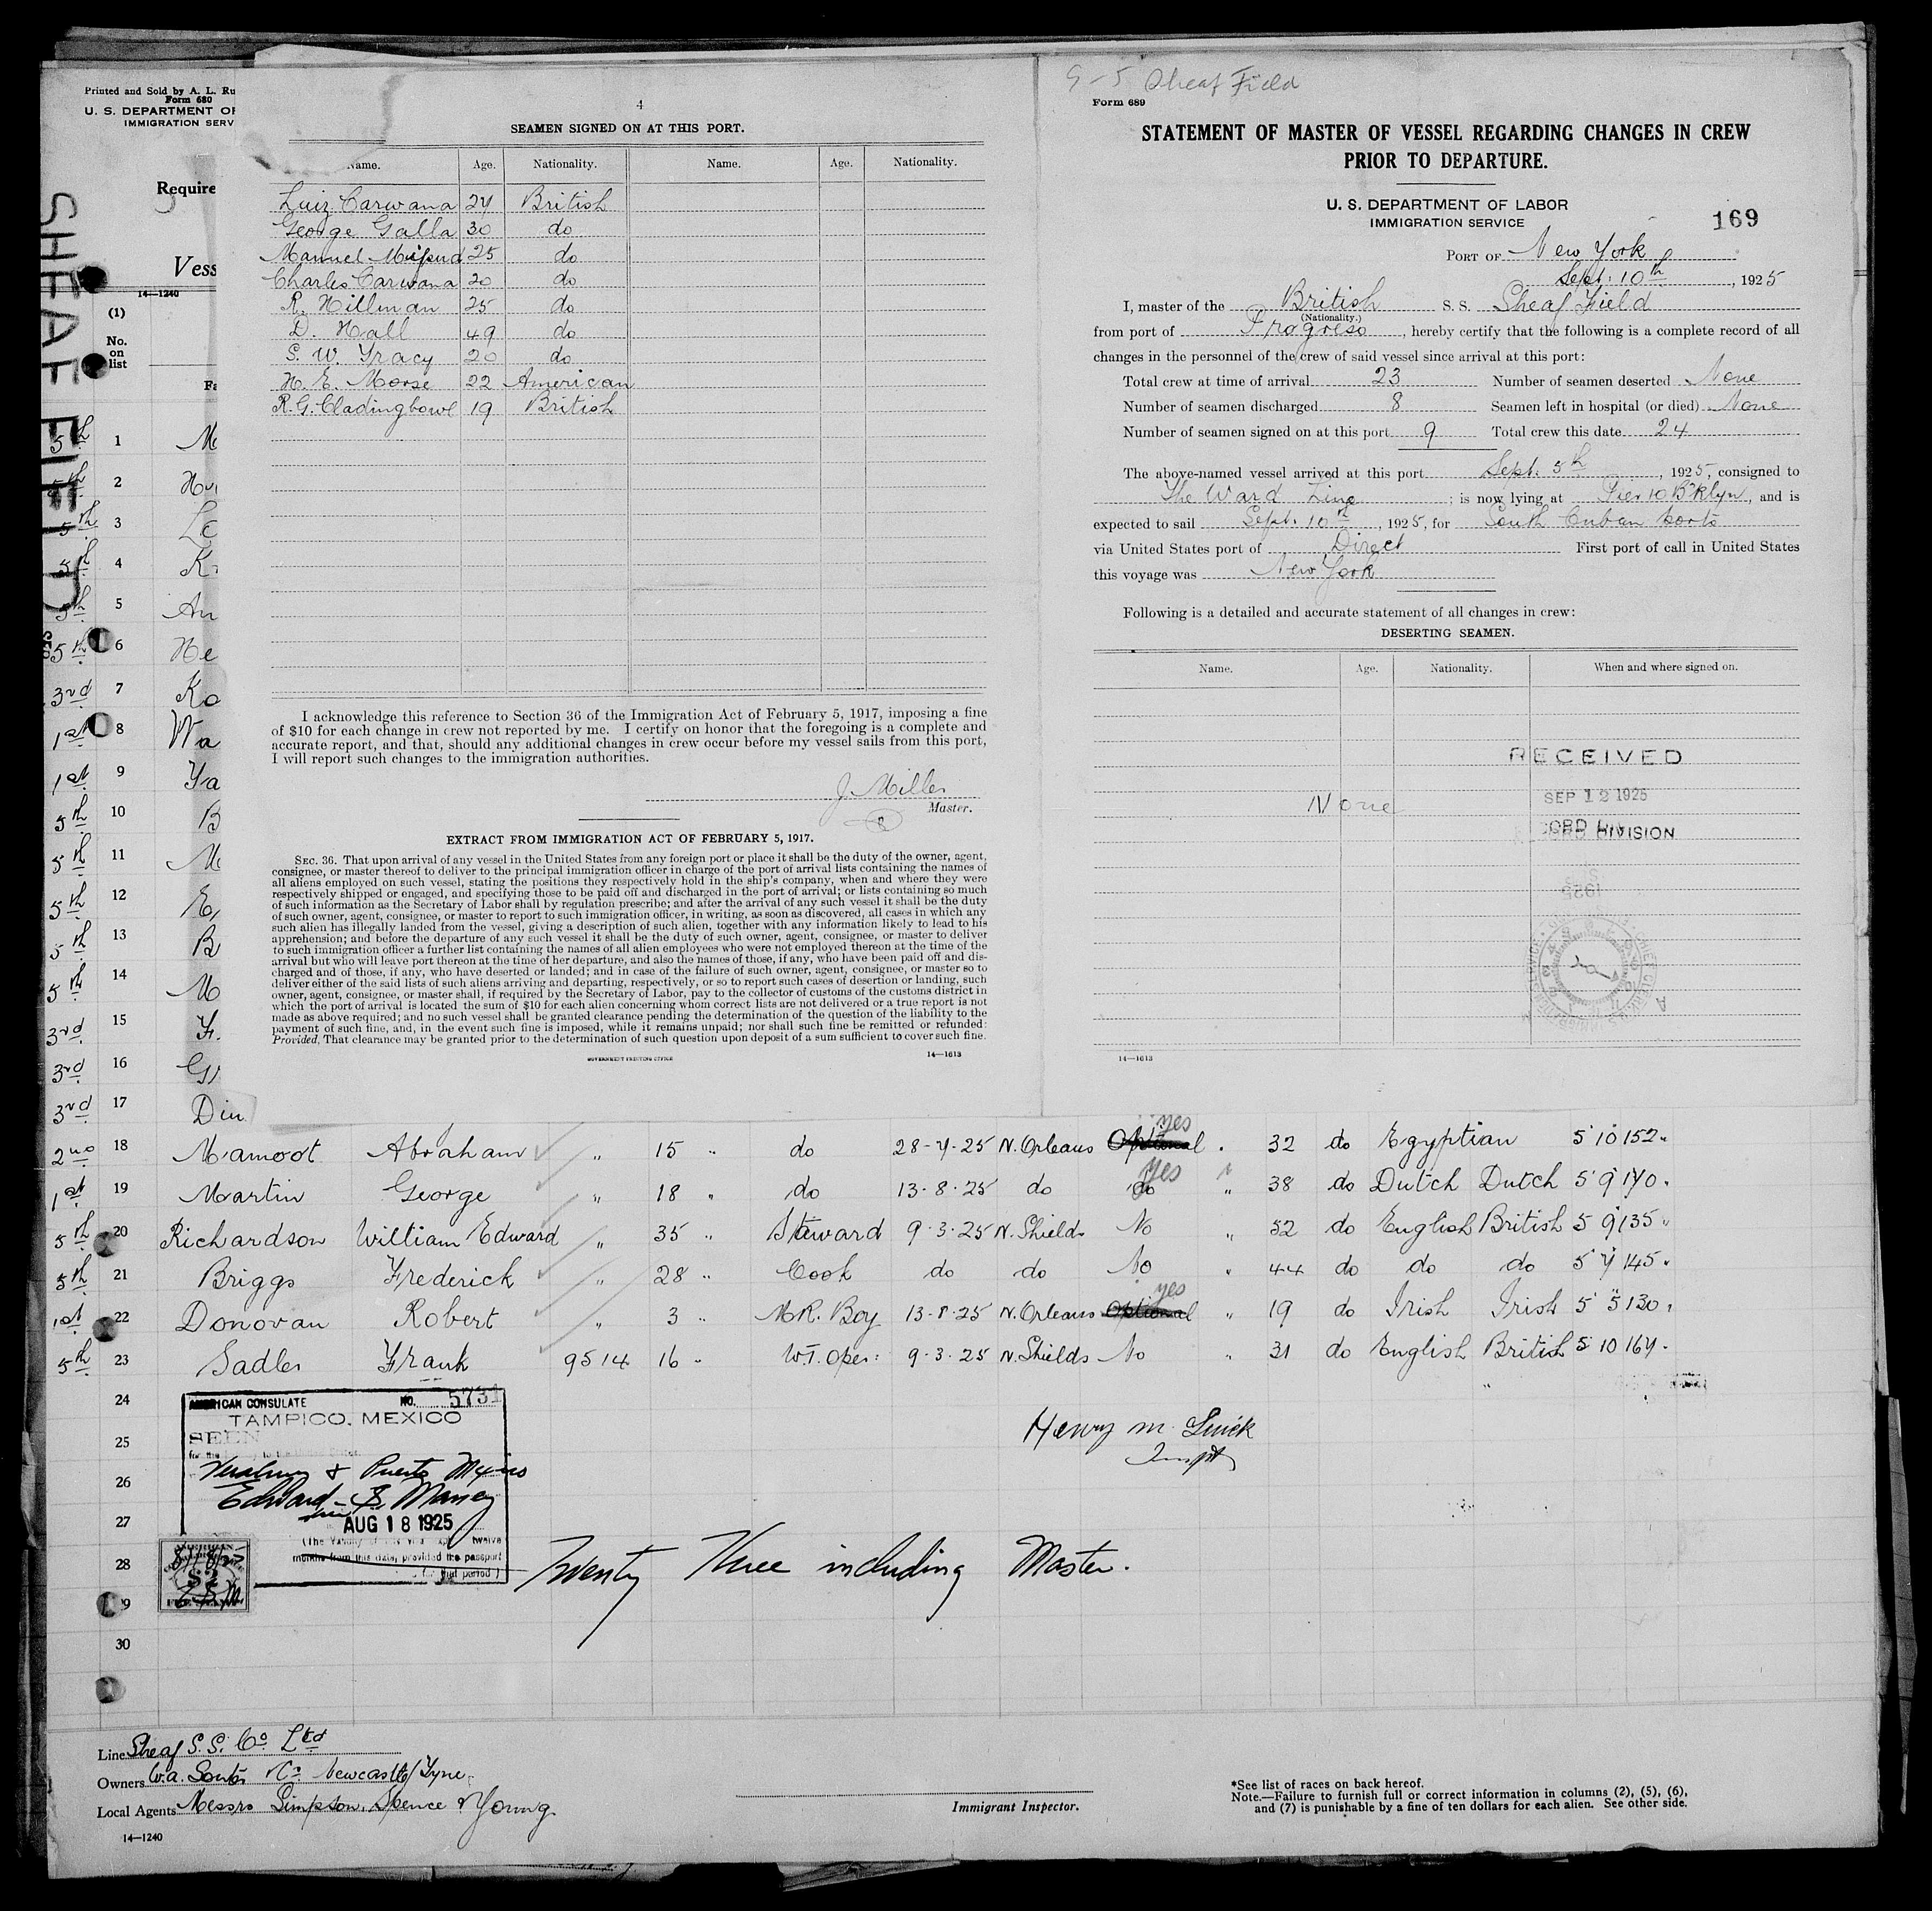 Printed and Sold by A. L. Ru
Form 680
U. S. DEPARTMENT OF
IMMIGRATION SERV
Require
Vess
14—1240
(1)
No.
on
list
Fa
SHEAF FIELD
4
SEAMEN SIGNED ON AT THIS PORT.
Name. Age. Nationality. Name. Age. Nationality.
Luiz Carwana 24 British
George Galla 30 do
Manuel 25 do
Charles Carwana 20 do
R. Hillman 25 do
D. Hall 49 do
S. W. Tracy 20 do
H. E. Morse 22 American
R. G. Cladingbowl 19 British
I acknowledge this reference to Section 36 of the Immigration Act of February 5, 1917, imposing a fine
of $10 for each change in crew not reported by me. I certify on honor that the foregoing is a complete and
accurate report, and that, should any additional changes in crew occur before my vessel sails from this port,
I will report such changes to the immigration authorities.
J. Miller
Master.
EXTRACT FROM IMMIGRATION ACT OF FEBRUARY 5, 1917.
SEC. 36. That upon arrival of any vessel in the United States from any foreign port or place it shall be the duty of the owner, agent,
consignee, or master thereof to deliver to the principal immigration officer in charge of the port of arrival lists containing the names of
all aliens employed on such vessel, stating the positions they respectively hold in the ship's company, when and where they were
respectively shipped or engaged, and specifying those to be paid off and discharged in the port of arrival; or lists containing so much
of such information as the Secretary of Labor shall by regulation prescribe; and after the arrival of any such vessel it shall be the duty
of such owner, agent, consignee, or master to report to such immigration officer, in writing, as soon as discovered, all cases in which any
such alien has illegally landed from the vessel, giving a description of such alien, together with any information likely to lead to his
apprehension; and before the departure of any such vessel it shall be the duty of such owner, agent, consignee, or master to deliver
to such immigration officer a further list containing the names of all alien employees who were not employed thereon at the time of the
arrival but who will leave port thereon at the time of her departure, and also the names of those, if any, who have been paid off and dis-
charged and of those, if any, who have deserted or landed; and in case of the failure of such owner, agent, consignee, or master so to
deliver either of the said lists of such aliens arriving and departing, respectively, or so to report such cases of desertion or landing, such
owner, agent, consignee, or master shall, if required by the Secretary of Labor, pay to the collector of customs of the customs district in
which the port of arrival is located the sum of $10 for each alien concerning whom correct lists are not delivered or a true report is not
made as above required; and no such vessel shall be granted clearance pending the determination of the question of the liability to the
payment of such fine, and, in the event such fine is imposed, while it remains unpaid; nor shall such fine be remitted or refunded:
Provided, That clearance may be granted prior to the determination of such question upon deposit of a sum sufficient to cover such fine.
GOVERNMENT PRINTING OFFICE 14—1613
9-5 Sheaf Field
Form 689
STATEMENT OF MASTER OF VESSEL REGARDING CHANGES IN CREW
PRIOR TO DEPARTURE.
U. S. DEPARTMENT OF LABOR
IMMIGRATION SERVICE
169
PORT OF New York
Sept. 10th, 1925
I, master of the British S. S. Sheaf Field
(Nationality.)
from port of Progreso, hereby certify that the following is a complete record of all
changes in the personnel of the crew of said vessel since arrival at this port:
Total crew at time of arrival 23 Number of seamen deserted None
Number of seamen discharged 8 Seamen left in hospital (or died) None
Number of seamen signed on at this port 9 Total crew this date 24
The above-named vessel arrived at this port Sept. 5th, 1925, consigned to
The Ward Line; is now lying at Pier 10 B'klyn, and is
expected to sail Sept. 10th, 1925, for South Cuban Ports
via United States port of Direct First port of call in United States
this voyage was New York
Following is a detailed and accurate statement of all changes in crew:
DESERTING SEAMEN.
Name. Age. Nationality. When and where signed on.
None
RECEIVED
SEP 12 1925
DIVISION
14—1613
5th 1 Mc
5th 2
5th 3
5th 4
5th 5 An
5th 6 He
3rd 7 Ko
1st 8 Wa
1st 9 Ya
5th 10 B
5th 11
5th 12
5th 13 B
5th 14 M
3rd 15 F
3rd 16
3rd 17 Din
2nd 18 Mamoot Abraham " 15 " do 28-7-25 N. Orleans Optional yes " 32 do Egyptian 5 10 152
1st 19 Martin George " 18 " do 13-8-25 do do yes " 38 do Dutch Dutch 5 9 170
5th 20 Richardson William Edward " 35 " Steward 9-3-25 N. Shields No " 52 do English British 5 9 135
5th 21 Briggs Frederick " 28 " Cook do do No " 44 do do do 5 7 145
1st 22 Donovan Robert " 3 " M.R. Boy 13-8-25 N. Orleans Optional yes " 19 do Irish Irish 5 5 130
5th 23 Sadler Frank 9514 16 " W.T. Oper: 9-3-25 N. Shields No " 31 do English British 5 10 164
24
25
26
27
28
29
30
AMERICAN CONSULATE NO. 5731
TAMPICO, MEXICO
SEEN
Veracruz & Puerto Mexico
Edward S. Maney
AUG 18 1925
twelve
months from this date, provided the passport
period)
$2
Henry M.
Inspt
Twenty Three including Master.
Line Sheaf S.S. Co Ltd
Owners W.A. Souter & Co. Newcastle/Tyne
Local Agents Messrs Simpson, Spence & Young.
14—1240
Immigrant Inspector.
*See list of races on back hereof.
Note.—Failure to furnish full or correct information in columns (2), (5), (6),
and (7) is punishable by a fine of ten dollars for each alien. See other side.